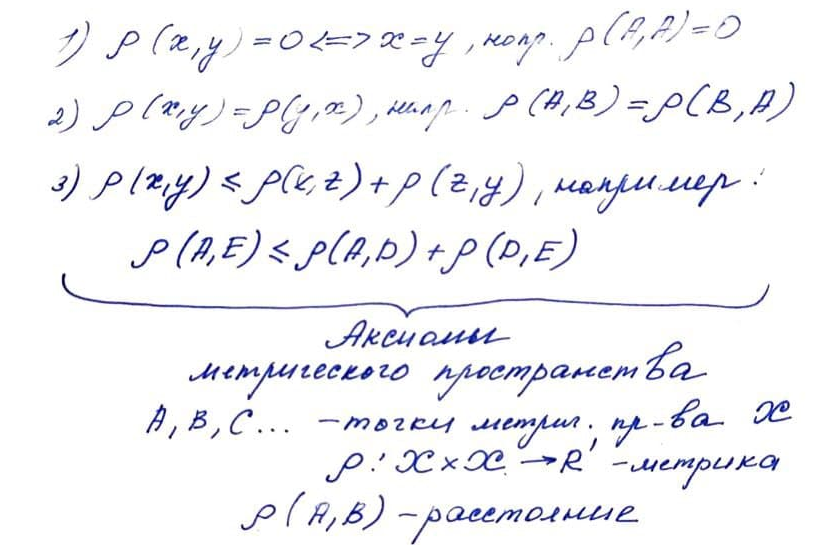 1) ρ(x,y)=0<=>x=y, напр. ρ(A,A)=0
2) ρ(x,y)=ρ(y,x), напр. ρ(A,B)=ρ(B,A)
3) ρ(x,y)≤ρ(x,z)+ρ(z,y), например:
ρ(A,E)≤ρ(A,D)+ρ(D,E)
Аксиомы
метрического пространства
A, B, C... -точки метрич. пр-ва X
ρ: X×X→R¹ -метрика
ρ(A,B) -расстояние